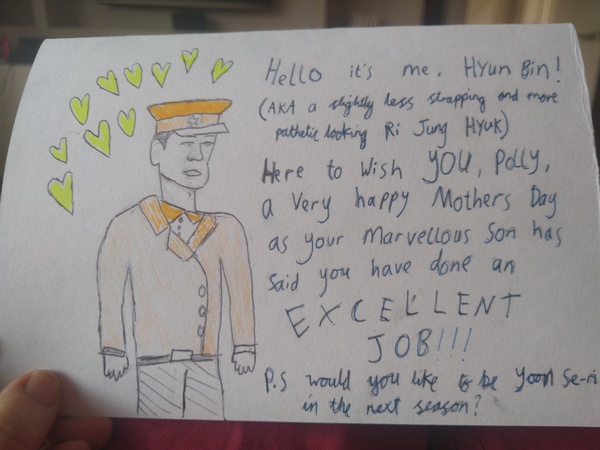 Hello it's me, Hyun Bin!
(AKA a slightly less strapping and more
pathetic looking Ri Jung Hyuk)
Here to wish YOU, Polly,
a very happy Mothers Day
as your marvellous son has
said you have done an
EXCELLENT
JOB!!!
P.S would you like to be Yoon Se-ri
in the next season?